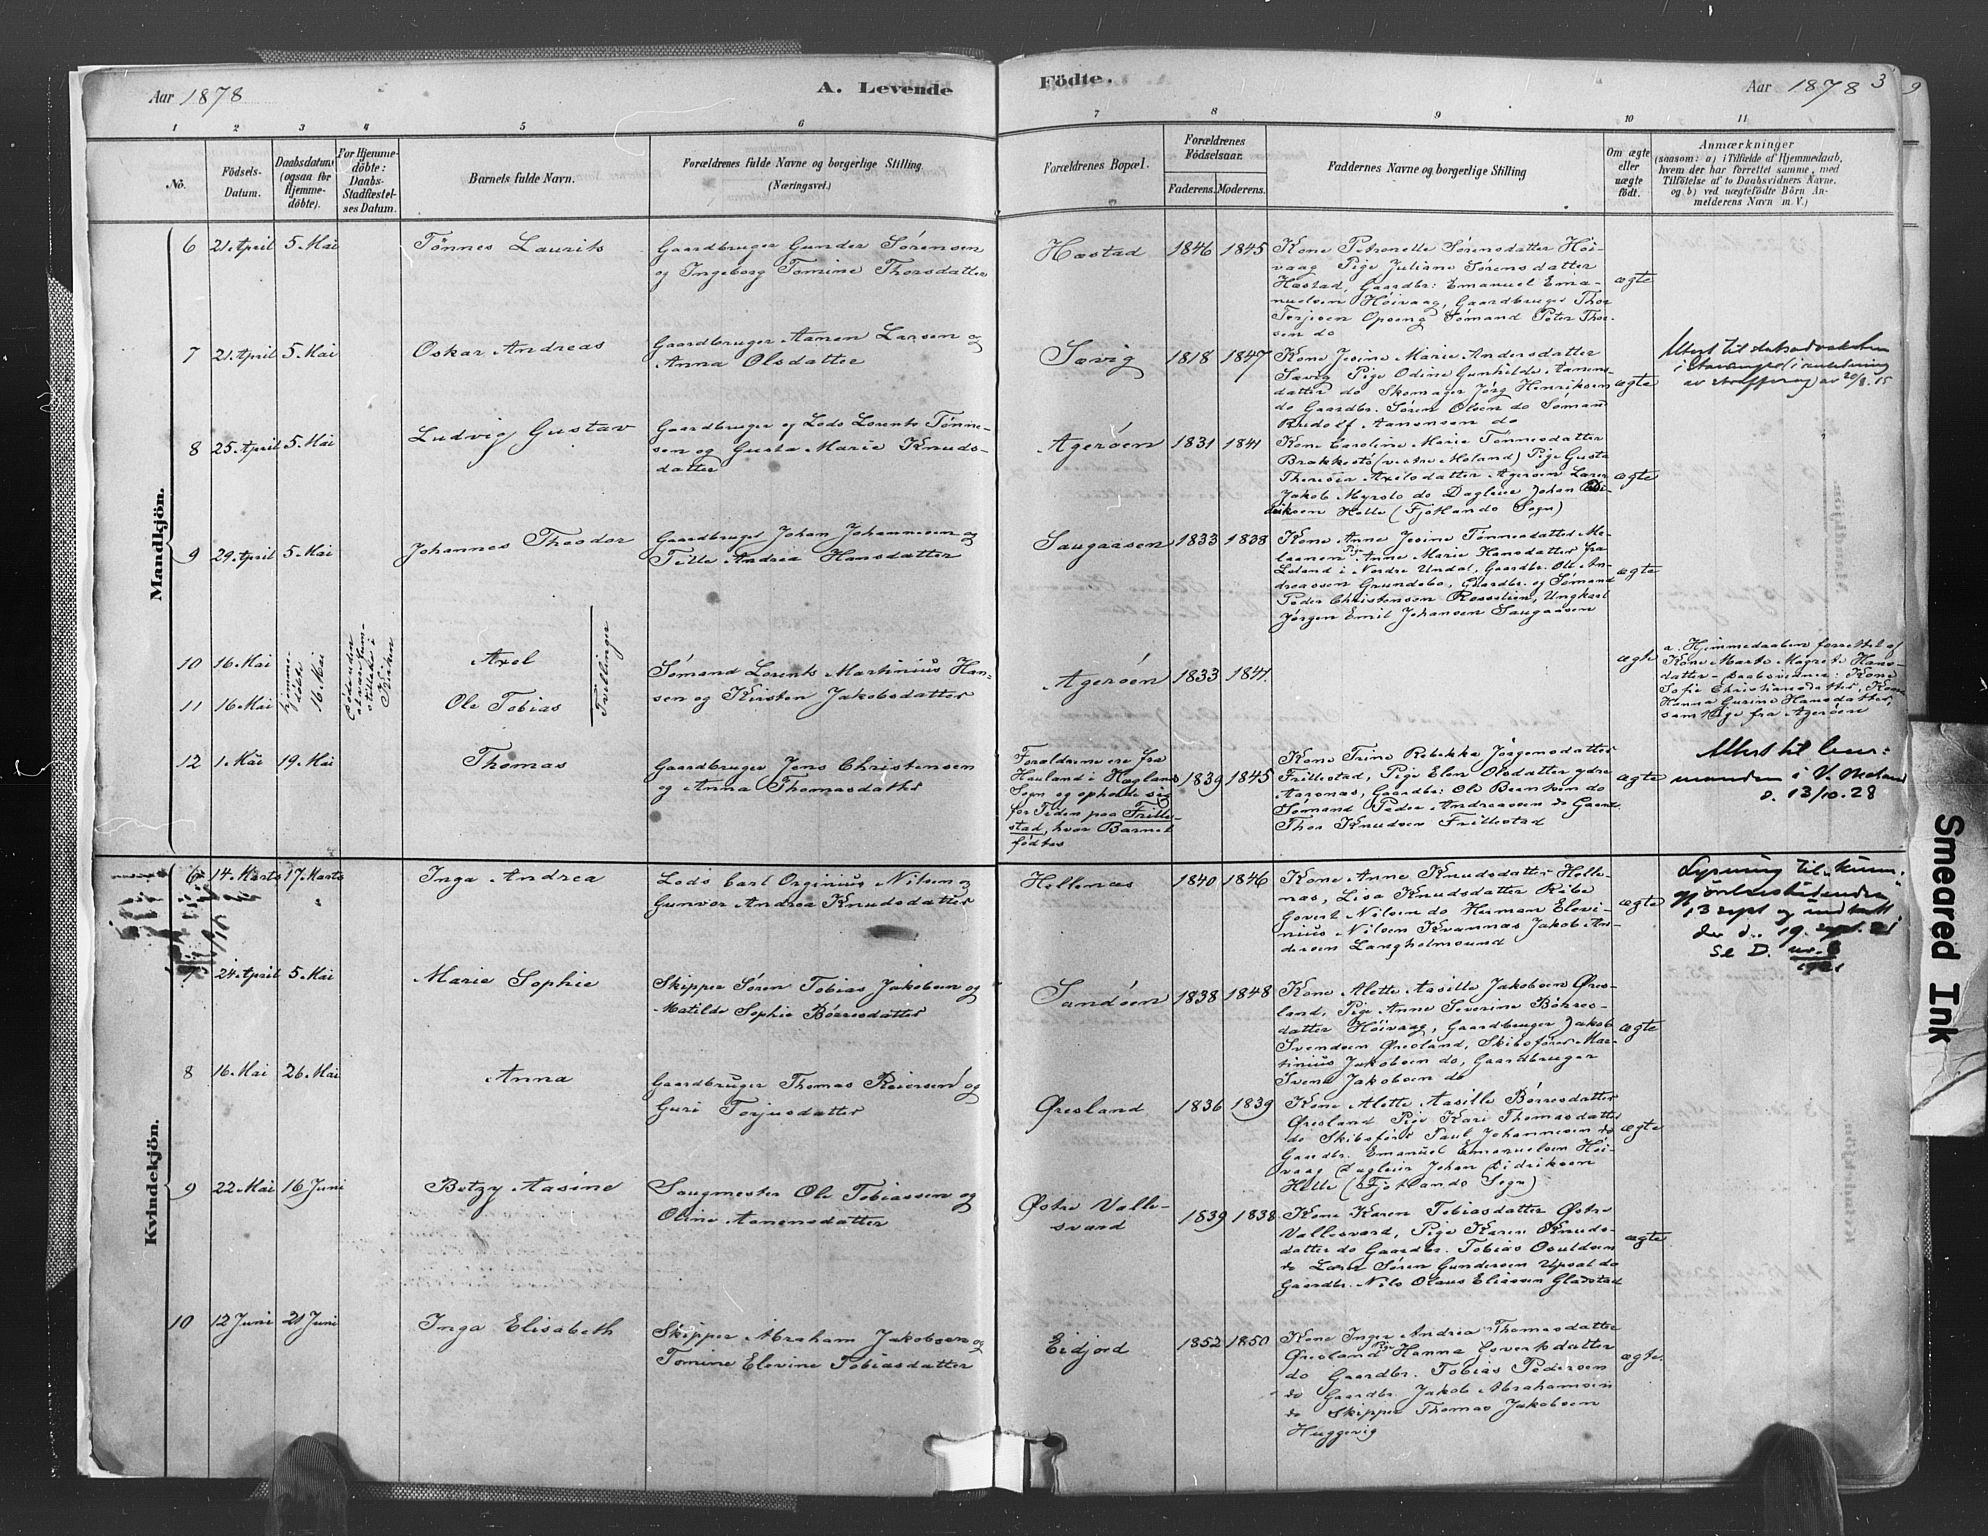 Aar 1878
A. Levende
Födte.
Aar 1878
3
1 2 3 4 5 6 7 8 9 10 11
No.
Födsels-
Datum.
Daabsdatum
(ogsaa for
Hjemme-
döbte).
For Hjemme-
döbte:
Daabs-
Stadfæstel-
ses Datum.
Barnets fulde Navn.
Forældrenes fulde Navne og borgerlige Stilling
(Næringsvei.)
Forældrenes Bopæl.
Forældrenes
Födselsaar.
Faderens. Moderens.
Faddernes Navne og borgerlige Stilling
Om ægte
eller
uægte
födt.
Anmærkninger
(saasom: a) i Tilfælde af Hjemmedaab,
hvem der har forrettet samme, med
Tilföielse af to Daabsvidners Navne,
og b) ved uægtefödte Börn An-
melderens Navn m. V.)
Mandkjön.
6 21. April 5. Mai
Tønnes Laurits
Gaardbruger Gunder Sørensen
og Ingeborg Tomine Thorsdatter
Hæstad
1846 1845
Kone Petronelle Sørensdatter Høi-
vaag Pige Juliane Sørensdatter
Hæstad, Gaardbr: Emanuel Ema-
nuelsen Høivaag, Gaardbruger Thor
Terjesen Opseng Sømand Peter Thor-
sen do
ægte
7 21. April 5. Mai
Oskar Andreas
Gaardbruger Aanen Larsen og
Anna Olsdatter
Sævig
1818 1847
Kone Jesine Marie Andersdatter
Sævig Pige Odine Gunhilde Aanens-
datter do Skomager Jørg Henriksen
do Gaardbr. Søren Olsen do Sømand
Rudolf Aanensen do
ægte
Attest til statsadvokaten
i Stavanger i anledning
av straffesag av 20/8.15
8 25. April 5. Mai
Ludvig Gustav
Gaardbruger og Lods Lorents Tønne-
sen og Gusta Marie Knuds-
datter
Agerøen
1831 1841
Kone Caroline Marie Tønnesdatter
Brækkestø (vestre Moland) Pige Gusta
Theresia Axelsdatter Agerøen Lærer
Jakob Myrstø do Dagleier Johan Did-
riksen Helle (Fjotlands Sogn)
ægte
9 29. April 5. Mai
Johannes Theodor
Gaardbruger Johan Johannesen og
Tille Andrea Hansdatter
Saugaasen
1833 1838
Kone Anne Jesine Tønnesdatter Me-
laanen Pige Anne Marie Hansdatter fra
Leland i Nordre Undal, Gaardbr. Ole An-
dreassen Grundebø, Gaardbr. og Sømand
Peder Christensen Rosselien, Ungkarl
Jørgen Emil Johansen Saugaasen
ægte
10 16. Mai
Axel
11 16. Mai
Ole Tobias
Tvillinger
hjemme-
døbte
16 Mai
Sømand Lorents Martinius Han-
sen og Kirsten Jakobsdatter
Agerøen
1833 1841
ægte
a. Hjemmedaaben forrettet af
Kone Marte Magrete Hans-
datter - Daabsvidner: Kone
Sofie Christiansdatter, Kone
Hanna Gurine Hansdatter,
samtlige fra Agerøen
12 1. Mai 19. Mai
Thomas
Gaardbruger Jens Christensen
og Anna Thomasdatter
Forældrene ere fra
Hauland i Høglands
Sogn og opholde sig
for Tiden paa Frille-
stad, hvor Barnet
fødtes
1839 1845
Kone Trine Rebekka Jørgensdatter
Frillestad, Pige Elen Olsdatter ydre
Aarsnæs, Gaardbr: Ole Berntsen do
Sømand Peder Andreassen do Gaardbr
Thor Knudsen Frillestad
ægte
Attest til lens-
manden i V. Moland
d. 13/10.28
Kvindekjön.
6 14. Marts 17. Marts
Inga Andrea
Lods Carl Orginius Nilsen og
Gunvor Andrea Knudsdatter
Hellenæs
1840 1846
Kone Anne Knudsdatter Helle-
næs, Lisa Knudsdatter Ribe
Govert Nilsen do Herman Elevi-
nius Nilsen Kvannæs Jakob An-
dersen Langholmsund
ægte
13 sept og
19. sept. 21
Se D. nr. 8
1921
7 24 April 5. Mai
Marie Sophie
Skipper Søren Tobias Jakobsen og
Matilde Sophie Børresdatter
Sandøen
1838 1848
Kone Alette Aasille Jakobsen Øres-
land, Pige Anne Severine Børres-
datter Høivaag, Gaardbruger Jakob
Svendsen Øresland, Skibsfører Mar-
tinius Jakobsen do, Gaardbruger
Svend Jakobsen do
ægte
8 16. Mai 26. Mai
Anna
Gaardbruger Thomas Reiersen og
Guri Torjusdatter
Øresland
1836 1839
Kone Alette Aasille Børresdatter
Øresland Pige Kari Thomasdatter
do Skibsfører Paul Johannesen do
Gaardbr. Emanuel Emanuelsen Høi-
vaag Dagleier Johan Didriksen
Helle (Fjotlands Sogn)
ægte
9 22. Mai 16 Juni
Betzy Aasine
Saugmester Ole Tobiassen og
Oline Aanensdatter
Østre Valle-
sverd
1839 1838
Kone Karen Tobiasdatter Østre
Vallesverd, Pige Karen Knuds-
datter do Gaardbr. Tobias Osuldsen
do Lærer Søren Gundersen Upsal do
Gaardbr. Nils Olaus Eliassen Gladstad
ægte
10 12 Juni 21 Juni
Inga Elisabeth
Skipper Abraham Jakobsen og
Tomine Elevine Tobiasdatter
Eidjord
1852 1850
Kone Inger Andrea Thomasdatter
Øresland Pige Hanna Govertsdatter
do Gaardbr. Tobias Pedersen
do Gaardbr. Jakob Abrahamsen
do Skipper Thomas Jakobsen
Huggevig
ægte
Smeared Ink